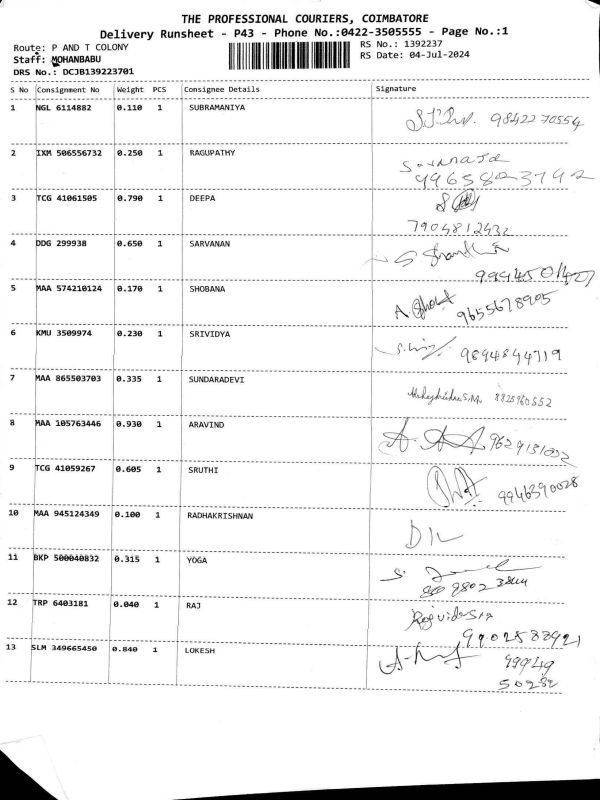 THE PROFESSIONAL COURIERS, COIMBATORE
Delivery Runsheet - P43 - Phone No.:0422-3505555 - Page No.:1
Route: P AND T COLONY
RS No.: 1392237
Staff: MOHANBABU
RS Date: 04-Jul-2024
DRS No.: DCJB139223701
S No Consignment No Weight PCS Consignee Details Signature
1 NGL 6114882 0.110 1 SUBRAMANIYA
9842270554
2 IXM 506556732 0.250 1 RAGUPATHY
9965823792
3 TCG 41061505 0.790 1 DEEPA
7904812432
4 DDG 299938 0.650 1 SARVANAN
5 MAA 574210124 0.170 1 SHOBANA
9655678905
6 KMU 3509974 0.230 1 SRIVIDYA
9894844719
7 MAA 865503703 0.335 1 SUNDARADEVI
8825960552
8 MAA 105763446 0.930 1 ARAVIND
9629131002
9 TCG 41059267 0.605 1 SRUTHI
9946390028
10 MAA 945124349 0.100 1 RADHAKRISHNAN
11 BKP 500040832 0.315 1 YOGA
12 TRP 6403181 0.040 1 RAJ
9902583921
13 SLM 349665450 0.840 1 LOKESH